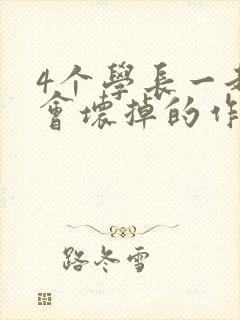 4个學長一
會壞掉的作
路冬雪